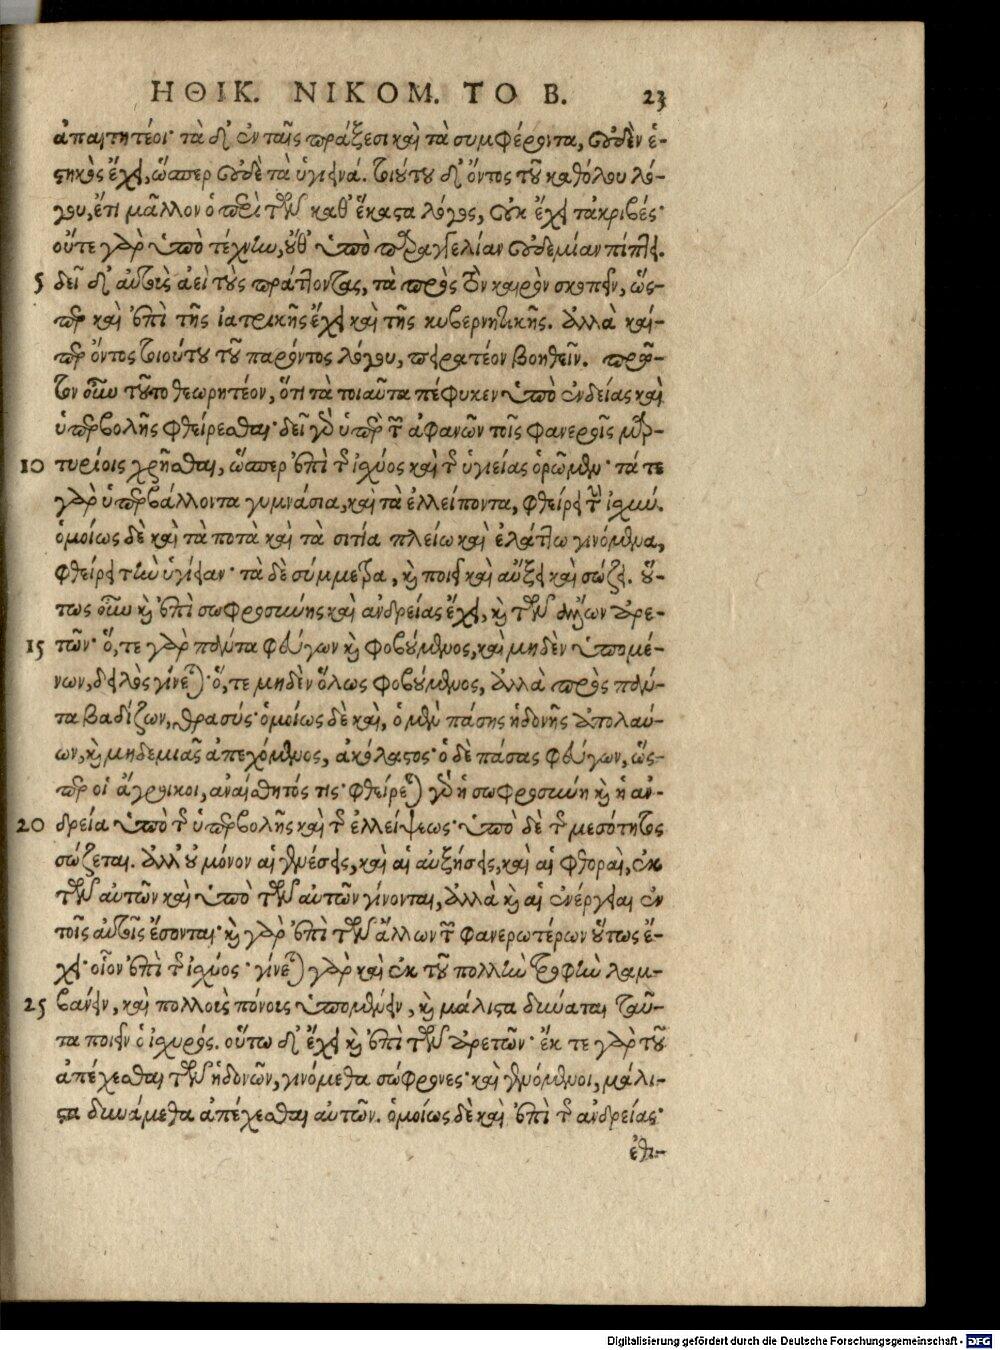 ΗΘΙΚ. ΝΙΚΟΜ. ΤΟ Β. 23
ἀπαιτητέοι· τὰ δ' ἐν ταῖς πράξεσι καὶ τὰ συμφέροντα, οὐδὲν ἑ-
στηκὸς ἔχει, ὥσπερ οὐδὲ τὰ ὑγιεινά. τοιούτου δ' ὄντος τοῦ καθόλου λό-
γου, ἔτι μᾶλλον ὁ περὶ τῶν καθ' ἕκαστα λόγος, οὐκ ἔχει τἀκριβές·
οὔτε γὰρ ὑπὸ τέχνην, οὔθ' ὑπὸ παραγγελίαν οὐδεμίαν πίπτει.
5 δεῖ δ' αὐτοὺς ἀεὶ τοὺς πράττοντας, τὰ πρὸς τὸν καιρὸν σκοπεῖν, ὥς-
περ καὶ ἐπὶ τῆς ἰατρικῆς ἔχει καὶ τῆς κυβερνητικῆς. ἀλλὰ καί-
περ ὄντος τοιούτου τοῦ παρόντος λόγου, πειρατέον βοηθεῖν. πρῶ-
τον οὖν τοῦτο θεωρητέον, ὅτι τὰ τοιαῦτα πέφυκεν ὑπὸ ἐνδείας καὶ
ὑπερβολῆς φθείρεσθαι· δεῖ γὰρ ὑπὲρ τῶν ἀφανῶν τοῖς φανεροῖς μαρ-
10 τυρίοις χρῆσθαι, ὥσπερ ἐπὶ τῆς ἰσχύος καὶ τῆς ὑγιείας ὁρῶμεν· τά τε
γὰρ ὑπερβάλλοντα γυμνάσια, καὶ τὰ ἐλλείποντα, φθείρει τὴν ἰσχύν.
ὁμοίως δὲ καὶ τὰ ποτὰ καὶ τὰ σιτία πλείω καὶ ἐλάττω γινόμενα,
φθείρει τὴν ὑγίειαν· τὰ δὲ σύμμετρα, καὶ ποιεῖ καὶ αὔξει καὶ σώζει. οὕ-
τως οὖν καὶ ἐπὶ σωφροσύνης καὶ ἀνδρείας ἔχει, καὶ τῶν ἄλλων ἀρε-
15 τῶν· ὅ, τε γὰρ πάντα φεύγων καὶ φοβούμενος, καὶ μηδὲν ὑπομέ-
νων, δειλὸς γίνεται· ὅ, τε μηδὲν ὅλως φοβούμενος, ἀλλὰ πρὸς πάν-
τα βαδίζων, θρασύς· ὁμοίως δὲ καὶ, ὁ μὲν πάσης ἡδονῆς ἀπολαύ-
ων, καὶ μηδεμιᾶς ἀπεχόμενος, ἀκόλαστος· ὁ δὲ πάσας φεύγων, ὥς-
περ οἱ ἄγροικοι, ἀναίσθητός τις· φθείρεται γὰρ ἡ σωφροσύνη καὶ ἡ ἀν-
20 δρεία ὑπὸ τῆς ὑπερβολῆς καὶ τῆς ἐλλείψεως· ὑπὸ δὲ τῆς μεσότητος
σώζεται. ἀλλ' οὐ μόνον αἱ γενέσεις, καὶ αἱ αὐξήσεις, καὶ αἱ φθοραὶ, ἐκ
τῶν αὐτῶν καὶ ὑπὸ τῶν αὐτῶν γίνονται, ἀλλὰ καὶ αἱ ἐνέργειαι ἐν
τοῖς αὐτοῖς ἔσονται· καὶ γὰρ ἐπὶ τῶν ἄλλων τῶν φανερωτέρων οὕτως ἔ-
χει· οἷον ἐπὶ τῆς ἰσχύος· γίνεται γὰρ καὶ ἐκ τοῦ πολλὴν τροφὴν λαμ-
25 βάνειν, καὶ πολλοὺς πόνους ὑπομένειν, καὶ μάλιστα δύναται ταῦ-
τα ποιεῖν ὁ ἰσχυρός. οὕτω δ' ἔχει καὶ ἐπὶ τῶν ἀρετῶν· ἔκ τε γὰρ τοῦ
ἀπέχεσθαι τῶν ἡδονῶν, γινόμεθα σώφρονες· καὶ γενόμενοι, μάλι-
στα δυνάμεθα ἀπέχεσθαι αὐτῶν. ὁμοίως δὲ καὶ ἐπὶ τῆς ἀνδρείας·
ἐθι-
Digitalisierung gefördert durch die Deutsche Forschungsgemeinschaft - DFG